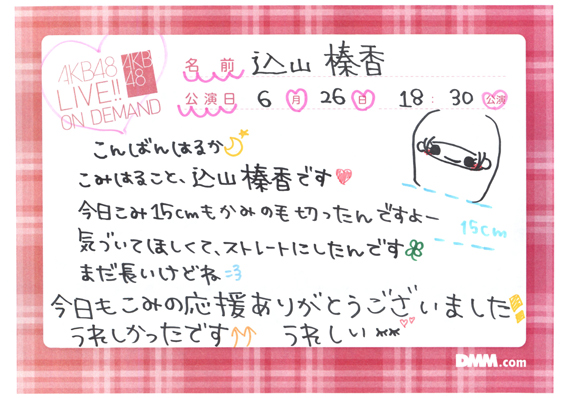 AKB48
LIVE!!
ON DEMAND
AKB
48
名前 込山 榛香
公演日 6月26日 18:30公演
こんばんはるか
こみはること、込山榛香です
今日こみ15cmもかみの毛切ったんですよー
15cm
気づいてほしくて、ストレートにしたんです
まだ長いけどね
今日もこみの応援ありがとうございました
うれしかったです うれしい
DMM.com